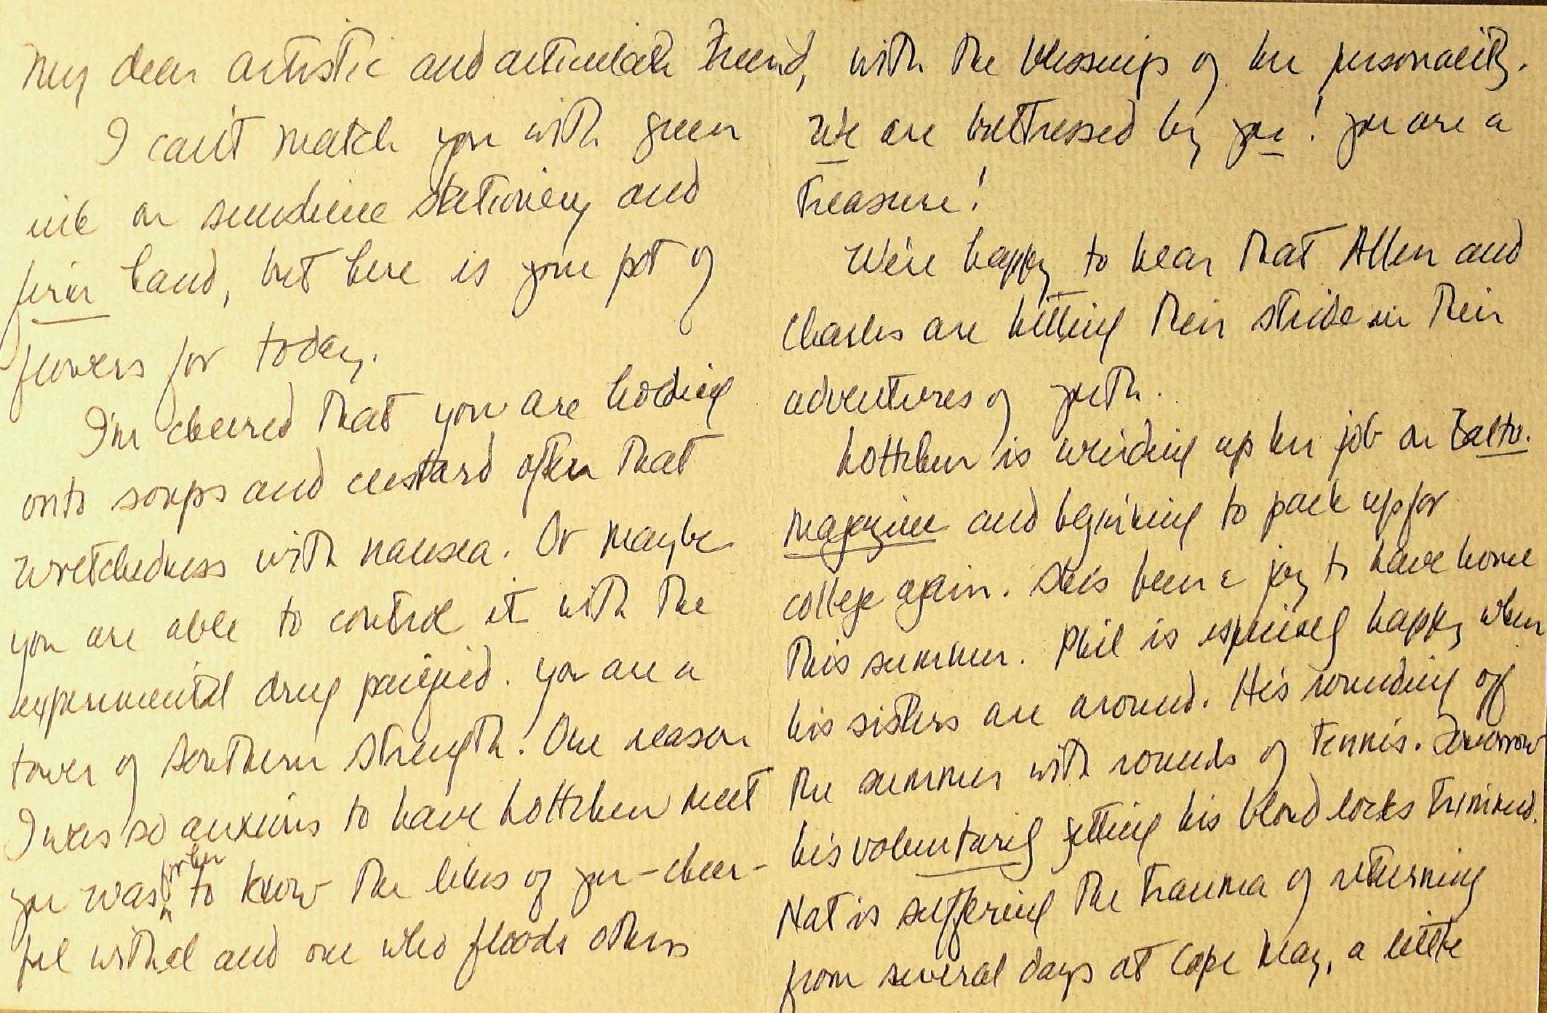 My dear artistic and articulate Friend,
I can't match you with green
ink on sunshine stationery and
firm hand, but here is your pot of
flowers for today.
I'm cheered that you are holding
onto soups and custard often that
wretchedness with nausea. Or maybe
you are able to control it with the
experimental drug pacified. You are a
tower of Southern Strength! One reason
I was so anxious to have Lottchen meet
you was for her to know the likes of you - cheer-
ful withal and one who floods others
with the blessings of her personality.
We are buttressed by you! You are a
treasure!
We're happy to hear that Allen and
Charles are hitting their stride in their
adventures of youth.
Lottchen is winding up her job on Balto.
Magazine and beginning to pack up for
college again. She's been a joy to have home
this summer. Phil is especially happy when
his sisters are around. He's rounding off
the summer with rounds of tennis. Tomorrow
he's voluntarily getting his blond locks trimmed.
Nat is suffering the trauma of returning
from several days at Cape May, a little